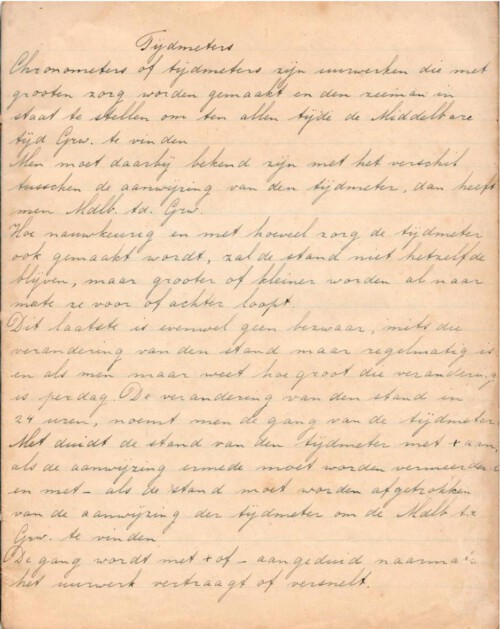 Tijdmeters
Chronometers of tijdmeters zijn uurwerken die met
grooten zorg worden gemaakt en den zeeman in
staat te stellen om ten allen tijde de Middelbare
tijd Grw. te vinden
Men moet daarbij bekend zijn met het verschil
tusschen de aanwijzing van den tijdmeter, dan heeft
men Mdlb. td. Grw.
Hoe nauwkeurig en met hoeveel zorg de tijdmeter
ook gemaakt wordt, zal de stand niet hetzelfde
blijven, maar grooter of kleiner worden al naar
mate ze voor of achter loopt.
Dit laatste is evenwel geen bezwaar, mits die
verandering van den stand maar regelmatig is
en als men maar weet hoe groot die verandering
is per dag. De verandering van den stand in
24 uren, noemt men de gang van de tijdmeter.
Met duidt de stand van den tijdmeter met + aan,
als de aanwijzing ermede moet worden vermeerderd
en met - als de stand moet worden afgetrokken
van de aanwijzing der tijdmeter om de Mdlb td
Grw. te vinden
De gang wordt met + of - aangeduid naarmate
het uurwerk vertraagt of versnelt.